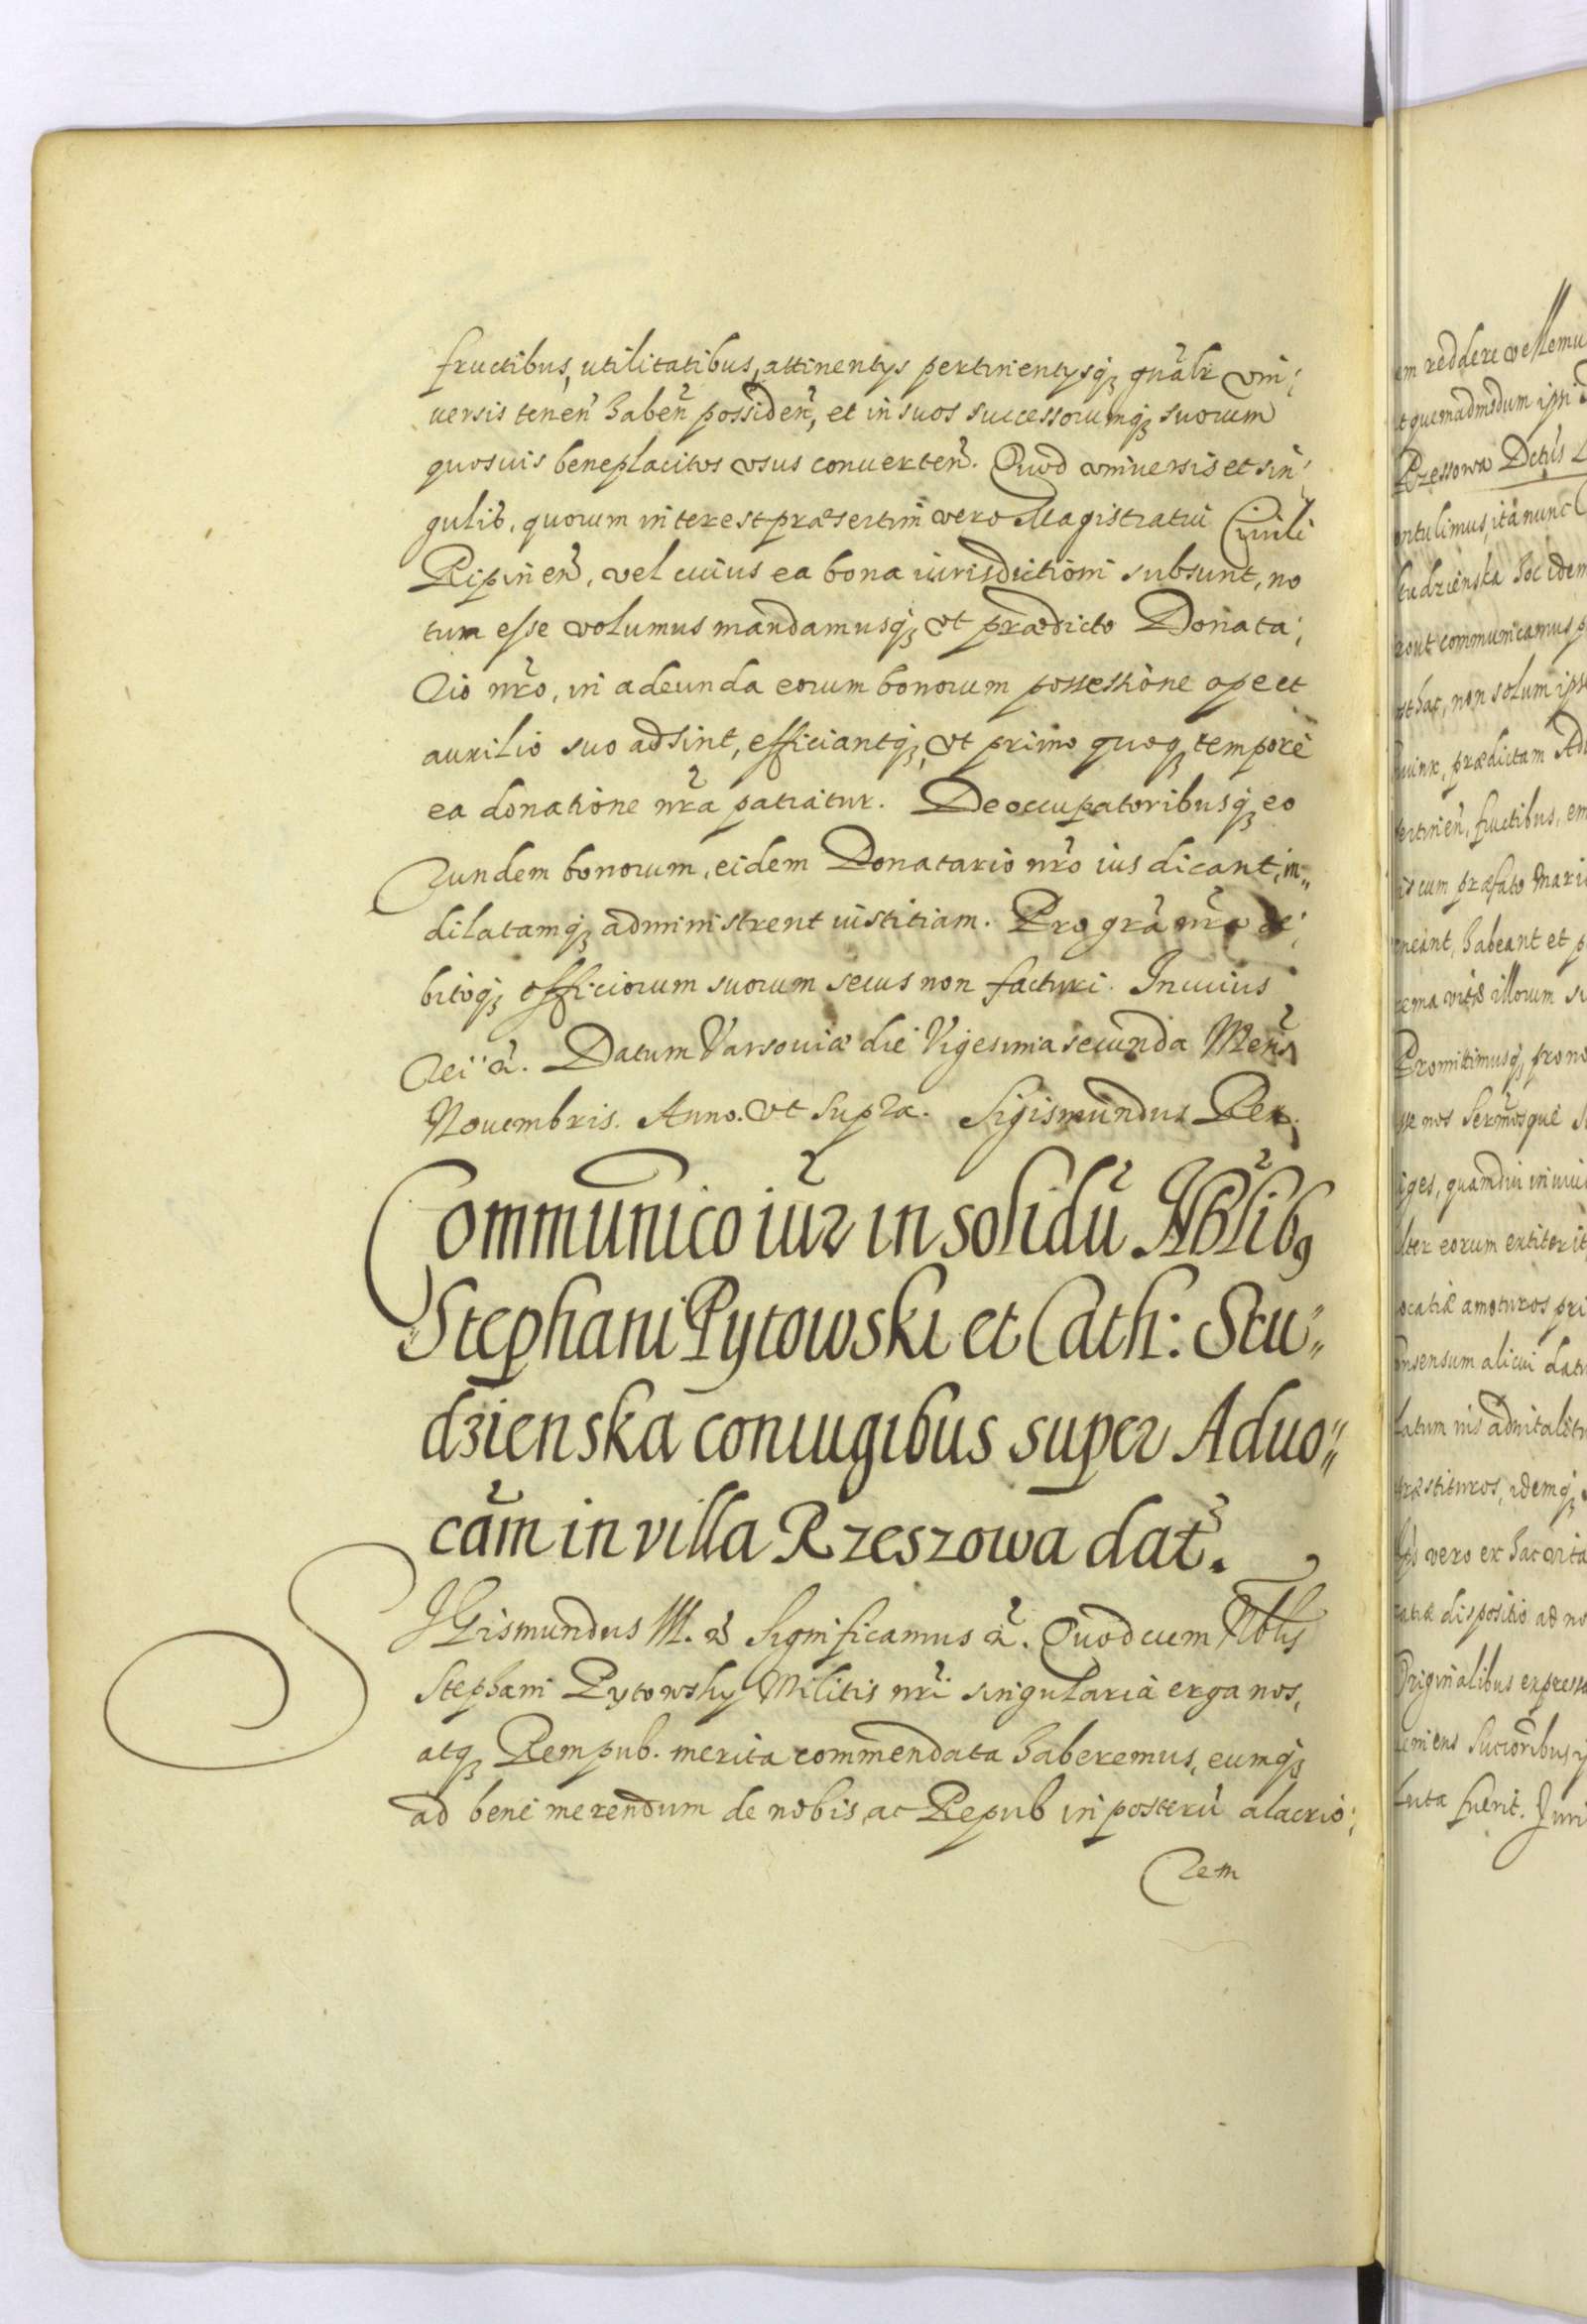 fructibus, utilitatibus, attinentys pertinentysq; gnãlr vni:
uersis tenen̄ haben̄ possiden̄, et in suos successorumq; suorum
quosuis beneplacitos vsus conuerten̄. Quod vniuersis et sin:
gulis, quorum interest præsertim vero Magistratui Ciuili
Ripinen̄, vel cuius ea bona iurisdictioni subsunt, no
tum esse volumus mandamusq; vt prædicto Donata:
rio nr̃o, in adeunda eorum bonorum possessione ope et
auxilio suo adsint, efficiantq;, vt primo quoq; tempore
ea donatione nr̃a patiatur. De occupatoribusq; eo
rundem bonorum, eidem Donatario nr̃o ius dicant, in,,
dilatamq; administrent iustitiam. Pro grã nr̃a de:
bitoq; officiorum suorum secus non facturi. In cuius
rei &. Datum Varsouiæ die Vigesima secunda Mens̃
Nouembris. Anno. vt supra. Sigismundus Rex.
Communico iur̃ in solidũ Nblib9
Stephani Pytowski et Cath: Stu"
dzienska coniugibus super Aduo"
cãm in villa Rzeszowa dat̃.
SIGismundus III. & Significamus &. Quod cum Nblis
Stephani Pytowsky Militis nr̃i singularia erga nos,
atq; Rempub. merita commendata haberemus, eumq;
ad bene merendum de nobis, ac Repub in posterũ alacrio:
rem
em reddere vellemu
t quemadmodum ipsi
Rzessowa Dctus
ntulimus, ita nunc
tudzienska hoc idem
rout communicamus p
sthac, non solum ips
uinr, prædictam Ad
ertinen̄, fructibus, em
is cum præfato mari
neant, habeant et p
rema vitæ illorum su
Promittimusq; pro no
se nos Sermosque S
iges, quamdiu in viui
lter eorum extiterit
ocatiæ amoturos pri
nsensum alicui datu
latum ius aduitalitu
ræstituros, idemq;
vero ex hac vita
tatiæ dispositio ad no
Originalibus express
imens Succoribus
luta fuerit. Iuri